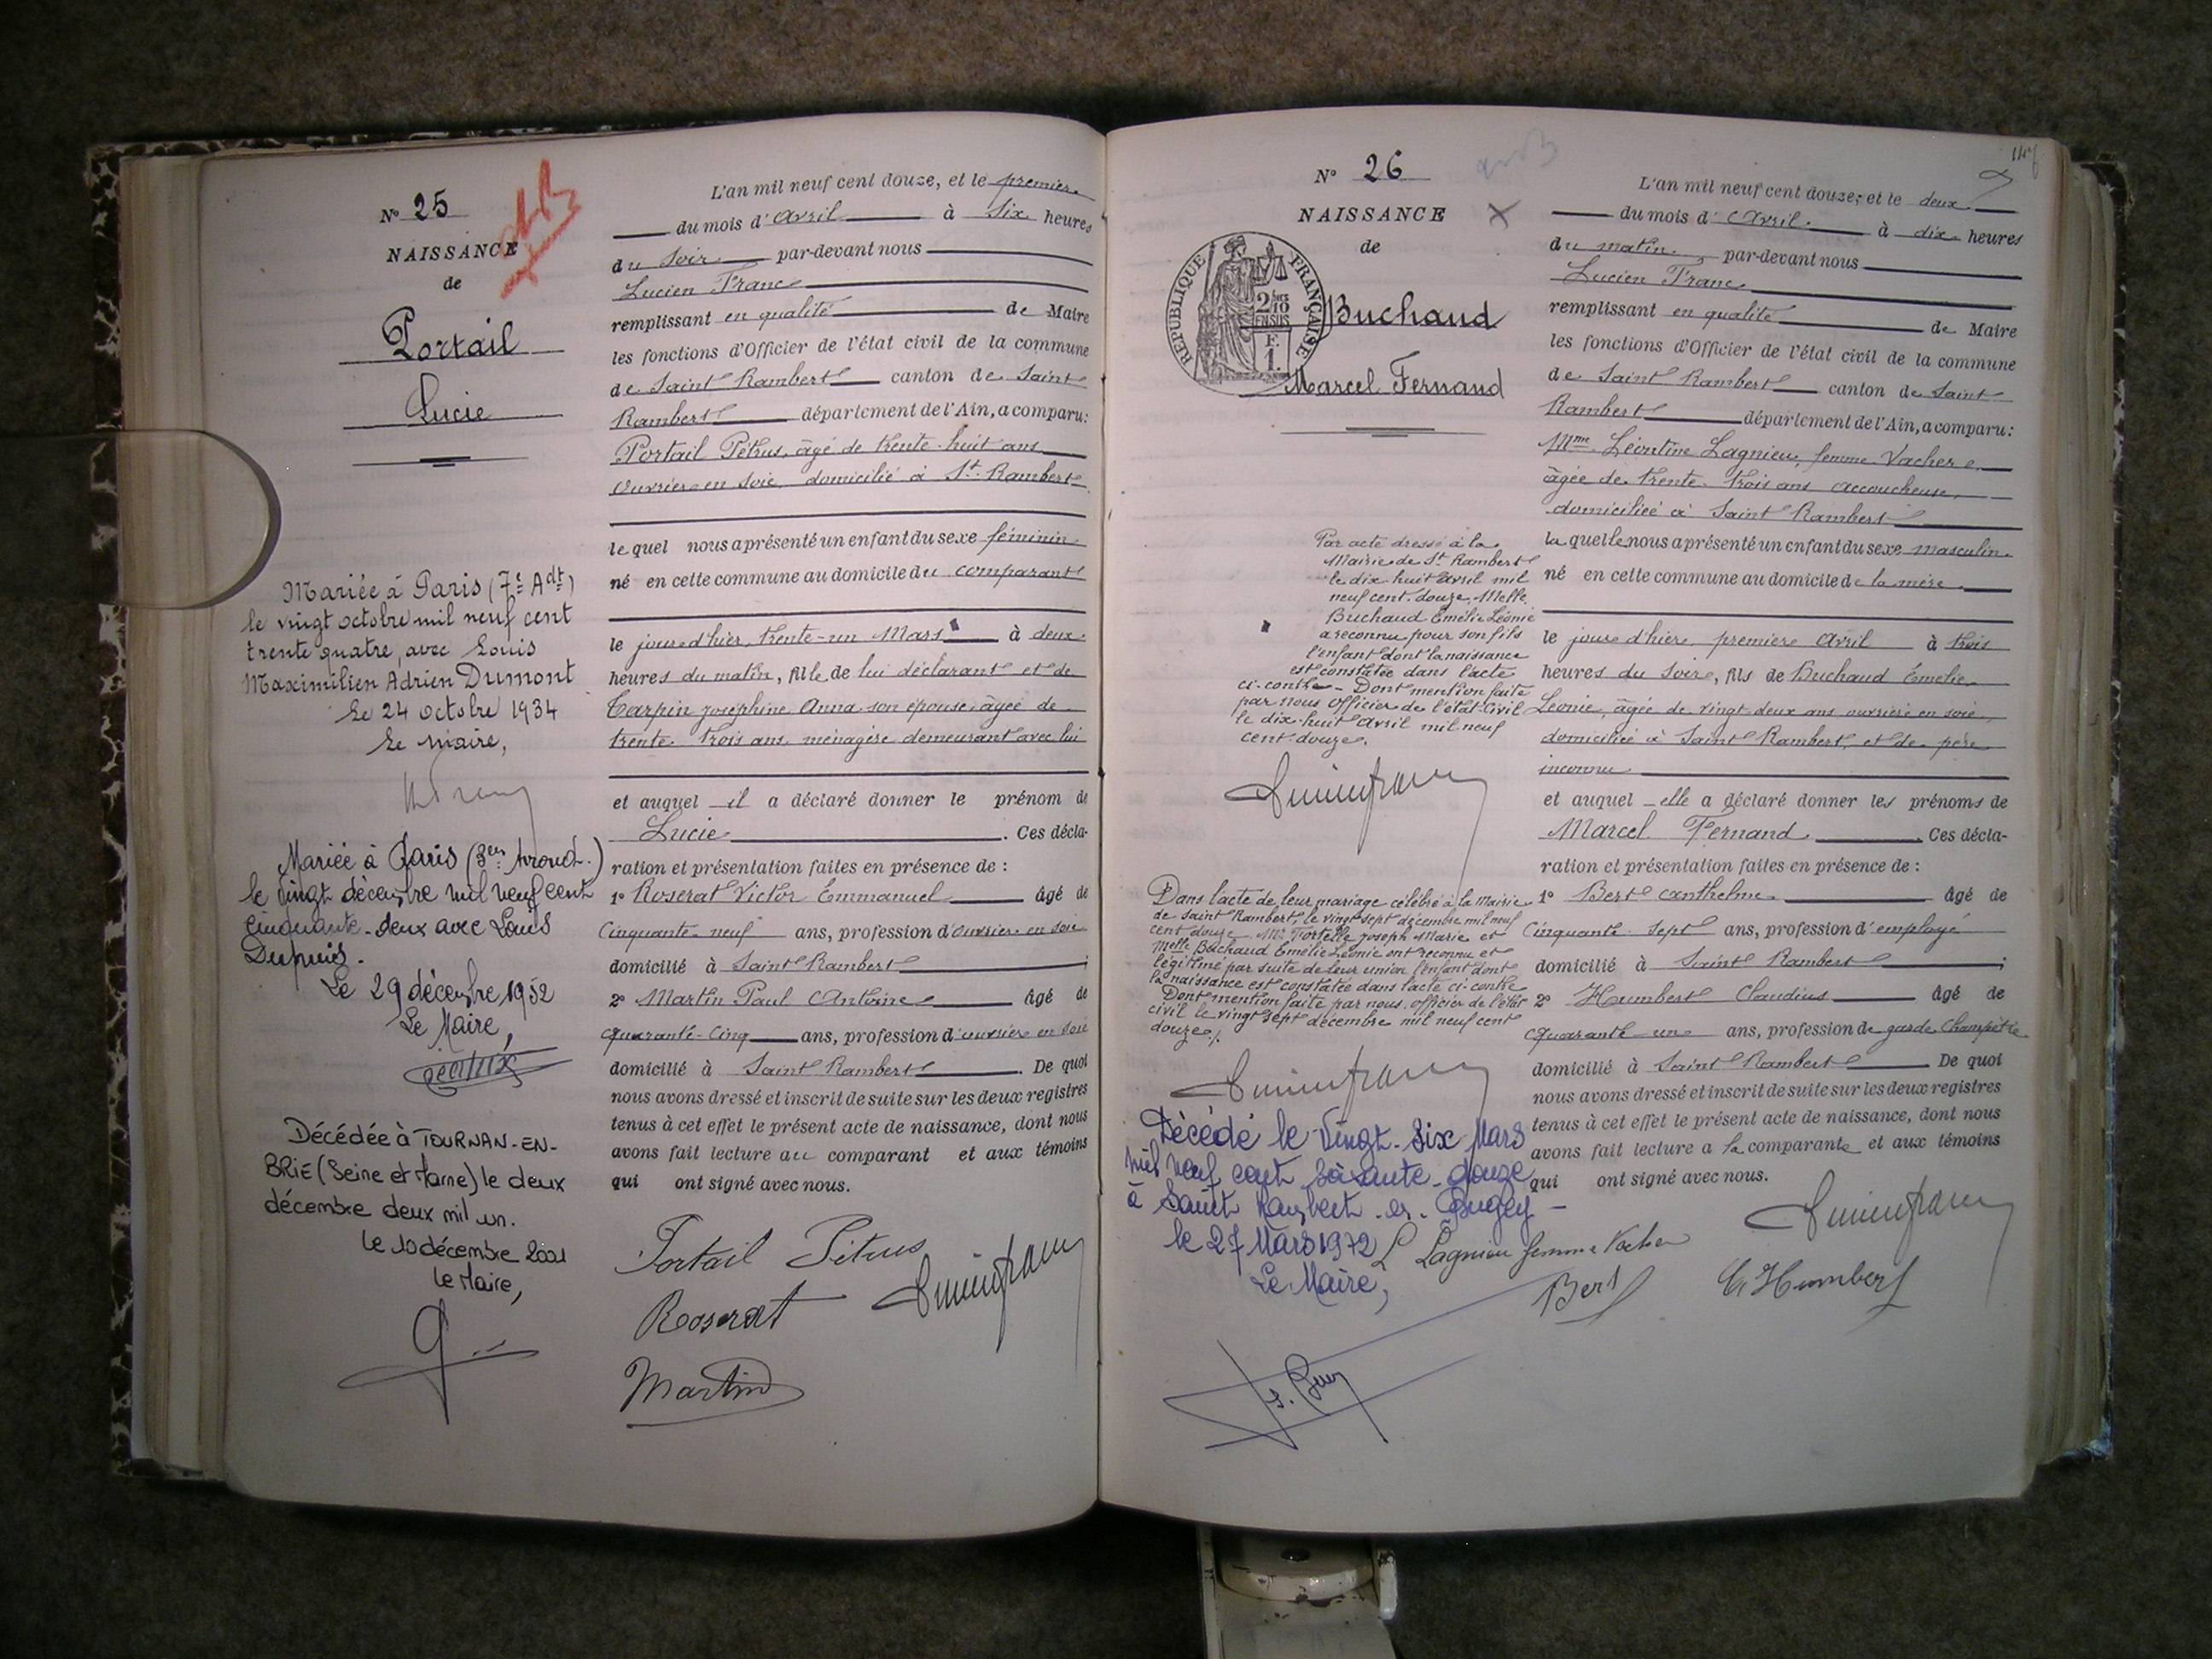 N° 25
NAISSANCE
de
Portail
Lucie
Mariée à Paris (7e Adt)
le vingt octobre mil neuf cent
trente quatre, avec Louis
Maximilien Adrien Dumont
Le 24 octobre 1934
Le maire,
Mariée à Paris (3em Arrond.)
le vingt décembre mil neuf cent
cinquante-deux avec Louis
Dupuis.
Le 29 décembre 1952
Le Maire,
Décédée à TOURNAN-EN-
BRIE (Seine et Marne) le deux
décembre deux mil un.
Le 10 décembre 2001
Le Maire,
L'an mil neuf cent douze, et le premier
du mois d'avril à six heures
du soir par-devant nous
Lucien Franc
remplissant en qualité de Maire
les fonctions d'Officier de l'état civil de la commune
de Saint Rambert canton de Saint
Rambert département de l'Ain, a comparu:
Portail Pétrus, âgé de trente-huit ans
ouvrier en soie, domicilié à St Rambert
le quel nous a présenté un enfant du sexe féminin
né en cette commune au domicile du comparant
le jour d'hier, trente-un Mars à deux
heures du matin, fille de lui déclarant et de
Tarpin Joséphine Anna son épouse, âgée de
trente-trois ans, ménagère demeurant avec lui
et auquel il a déclaré donner le prénom de
Lucie. Ces décla-
ration et présentation faites en présence de :
1° Roserat Victor Emmanuel âgé de
cinquante-neuf ans, profession d'ouvrier en soie
domicilié à Saint Rambert ;
2° Martin Paul Antoine âgé de
quarante-cinq ans, profession d'ouvrier en soie
domicilié à Saint Rambert. De quoi
nous avons dressé et inscrit de suite sur les deux registres
tenus à cet effet le présent acte de naissance, dont nous
avons fait lecture au comparant et aux témoins
qui ont signé avec nous.
Portail Pétrus
Roserat
Lucien franc
Martin
N° 26
NAISSANCE
de
RÉPUBLIQUE FRANÇAISE
2/10
EN SUS
F.
1.
Buchaud
Marcel Fernand
Par acte dressé à la
Mairie de St Rambert
le dix huit avril mil
neuf cent douze, Melle
Buchaud Emélie Léonie
a reconnu pour son fils
l'enfant dont la naissance
est constatée dans l'acte
ci-contre - Dont mention faite
par nous officier de l'état-Civil
le dix-huit avril mil neuf
cent douze.
Lucien franc
Dans l'acte de leur mariage célébré à la Mairie
de Saint Rambert, le vingt sept décembre mil neuf
cent douze Mr Tortelle Joseph Marie et
Melle Buchaud Emélie Léonie ont reconnu et
légitimé par suite de leur union l'enfant dont
la naissance est constatée dans l'acte ci-contre
Dont mention faite par nous, officier de l'état
civil le vingt sept décembre mil neuf cent
douze.
Lucien franc
Décédé le vingt-six Mars
mil neuf cent soixante-douze
à Saint Rambert-en-Bugey -
le 27 Mars 1972
Le Maire,
L'an mil neuf cent douze, et le deux
du mois d'Avril à dix heures
du matin par-devant nous
Lucien Franc
remplissant en qualité de Maire
les fonctions d'Officier de l'état civil de la commune
de Saint Rambert canton de Saint
Rambert département de l'Ain, a comparu:
Mme Léontine Lagnieu, femme Vacher
âgée de trente-trois ans accoucheuse,
domiciliée à Saint Rambert
la quelle nous a présenté un enfant du sexe masculin
né en cette commune au domicile de la mère
le jour d'hier, premier Avril à trois
heures du soir, fils de Buchaud Emélie
Léonie, âgée de vingt deux ans ouvrière en soie,
domiciliée à Saint Rambert, et de père
inconnu
et auquel elle a déclaré donner les prénoms de
Marcel Fernand. Ces décla-
ration et présentation faites en présence de :
1° Bert Anthelme âgé de
cinquante-sept ans, profession d'employé
domicilié à Saint Rambert ;
2° Humbert Claudius âgé de
quarante-un ans, profession de garde Champêtre
domicilié à Saint Rambert De quoi
nous avons dressé et inscrit de suite sur les deux registres
tenus à cet effet le présent acte de naissance, dont nous
avons fait lecture a la comparante et aux témoins
qui ont signé avec nous.
Lucien franc
L Lagnieu femme Vacher
Bert
C. Humbert